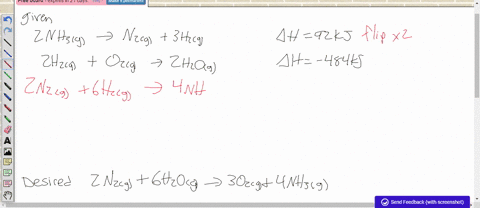 given
2NH₃(g) → N₂(g) + 3H₂(g) ΔH = 92kJ flip x2
2H₂(g) + O₂(g → 2H₂O(g) ΔH = -484kJ
2N₂(g) + 6H₂(g) → 4NH
Desired 2N₂(g) + 6H₂O(g → 3O₂(g)+ 4NH₃(g)
Send Feedback (with screenshot)